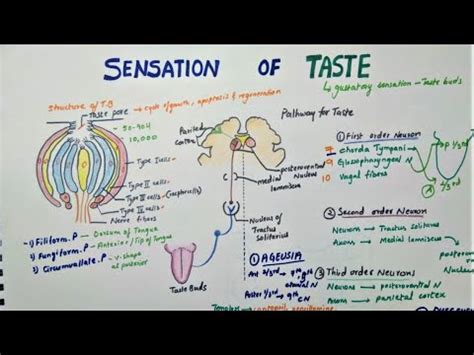 SENSATION OF TASTE
↳ gustatory sensation - Taste buds
Structure of T.B
Taste pore → cycle of growth, apoptosis & regeneration
10,000
Type I cells
Type II cells
Type III cells
Type IV cells
Nerve fibres
-1) Filiform. P - Dorsum of Tongue
2) Fungiform. P - Anterior / Tip of Tongue
3) Circumvallate. P - V-shape
at posterior
Pathway for Taste
Parietal
cortex
posteroventral
medial Nuclei
Medial
lemniscus
Nucleus of
Tractus
Solitarius
Taste Buds
① First order Neuron
7 → chorda Tympani
9 Glossopharyngeal N
10 vagal fibres
② Second order Neuron
Neurons → Tractus solitarus
Axons → Medial lemniscus
③ Third order Neurons
Neurons → posteroventral
Axons → parietal cortex
① AGEUSIA
Ant 2/3rd
Poster 1/3rd 9th
CN